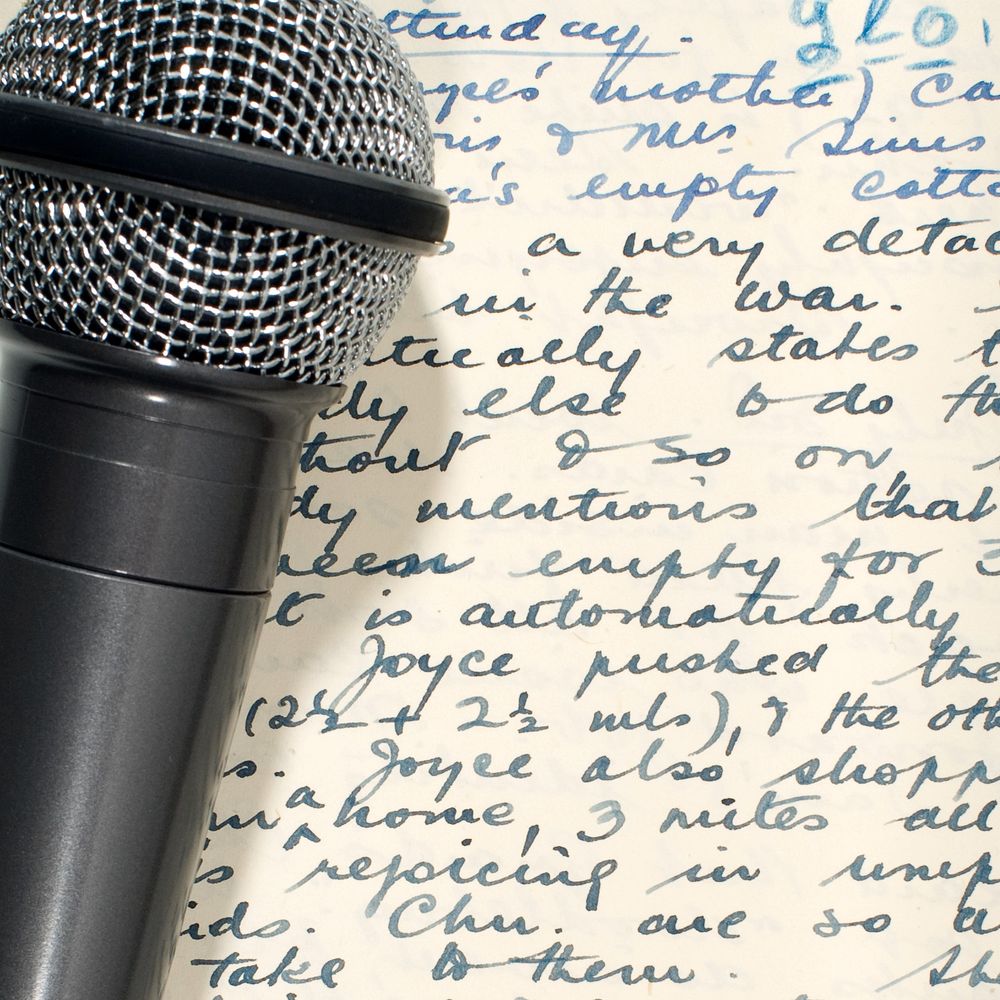 glo.
aturday.
oyce's mother) ca
ris & Mrs. Sims
a's empty cotta
s a very detac
in the war.
atically states t
dy else to do th
thout & so on,
dy mentions that
been empty for 3
t is automatically
Joyce pushed the
(2½ + 2½ mls), & the oth
s. Joyce also shopp
in a home, 3 miles all
's rejoicing in unexp
ids. Chn. are so a
take to them. Sh